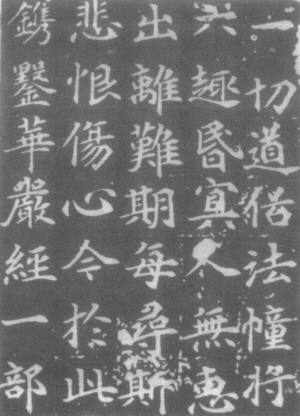 一切道俗法幢将
六趣昏寞人無惠
出離難期每尋斯
悲恨傷心今於此
鐫鑿華嚴經一部